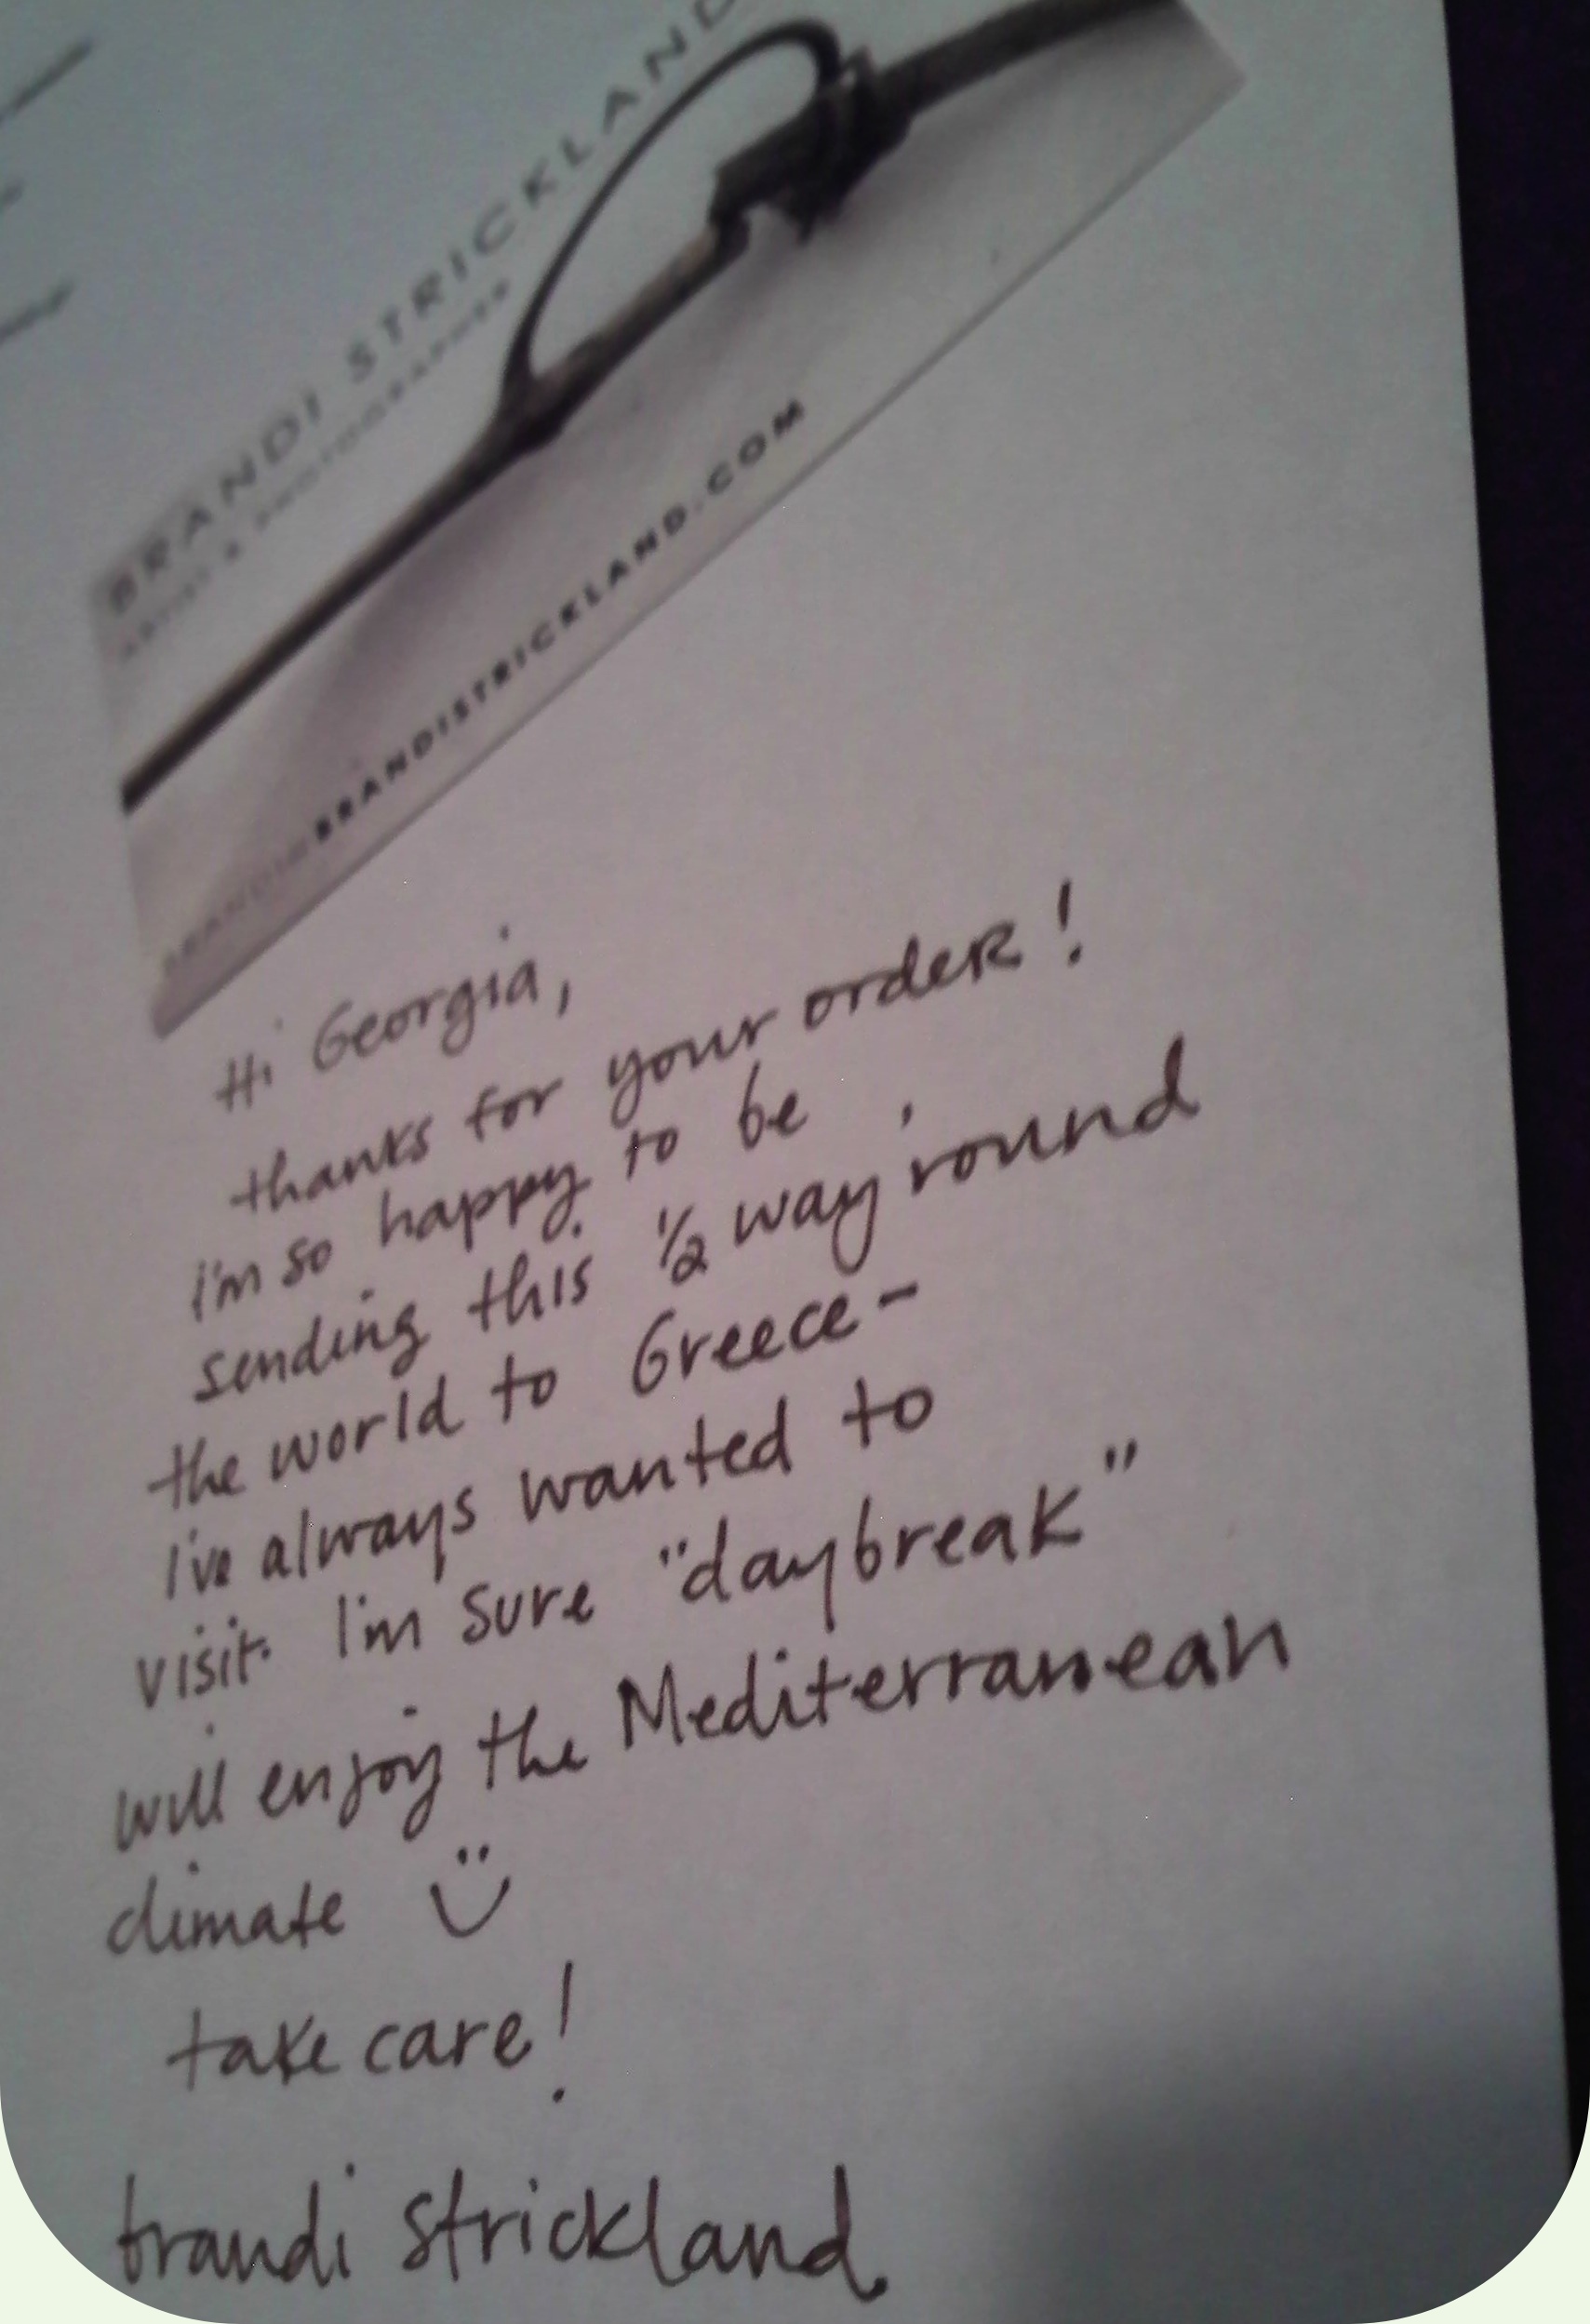 BRANDI STRICKLAND
ARTIST & PHOTOGRAPHER
BRANDI@BRANDISTRICKLAND.COM
Hi Georgia,
thanks for your order!
I'm so happy to be
sending this 1/2 way 'round
the world to Greece-
I've always wanted to
visit. I'm sure "daybreak"
will enjoy the Mediterranean
climate ü
take care!
brandi strickland